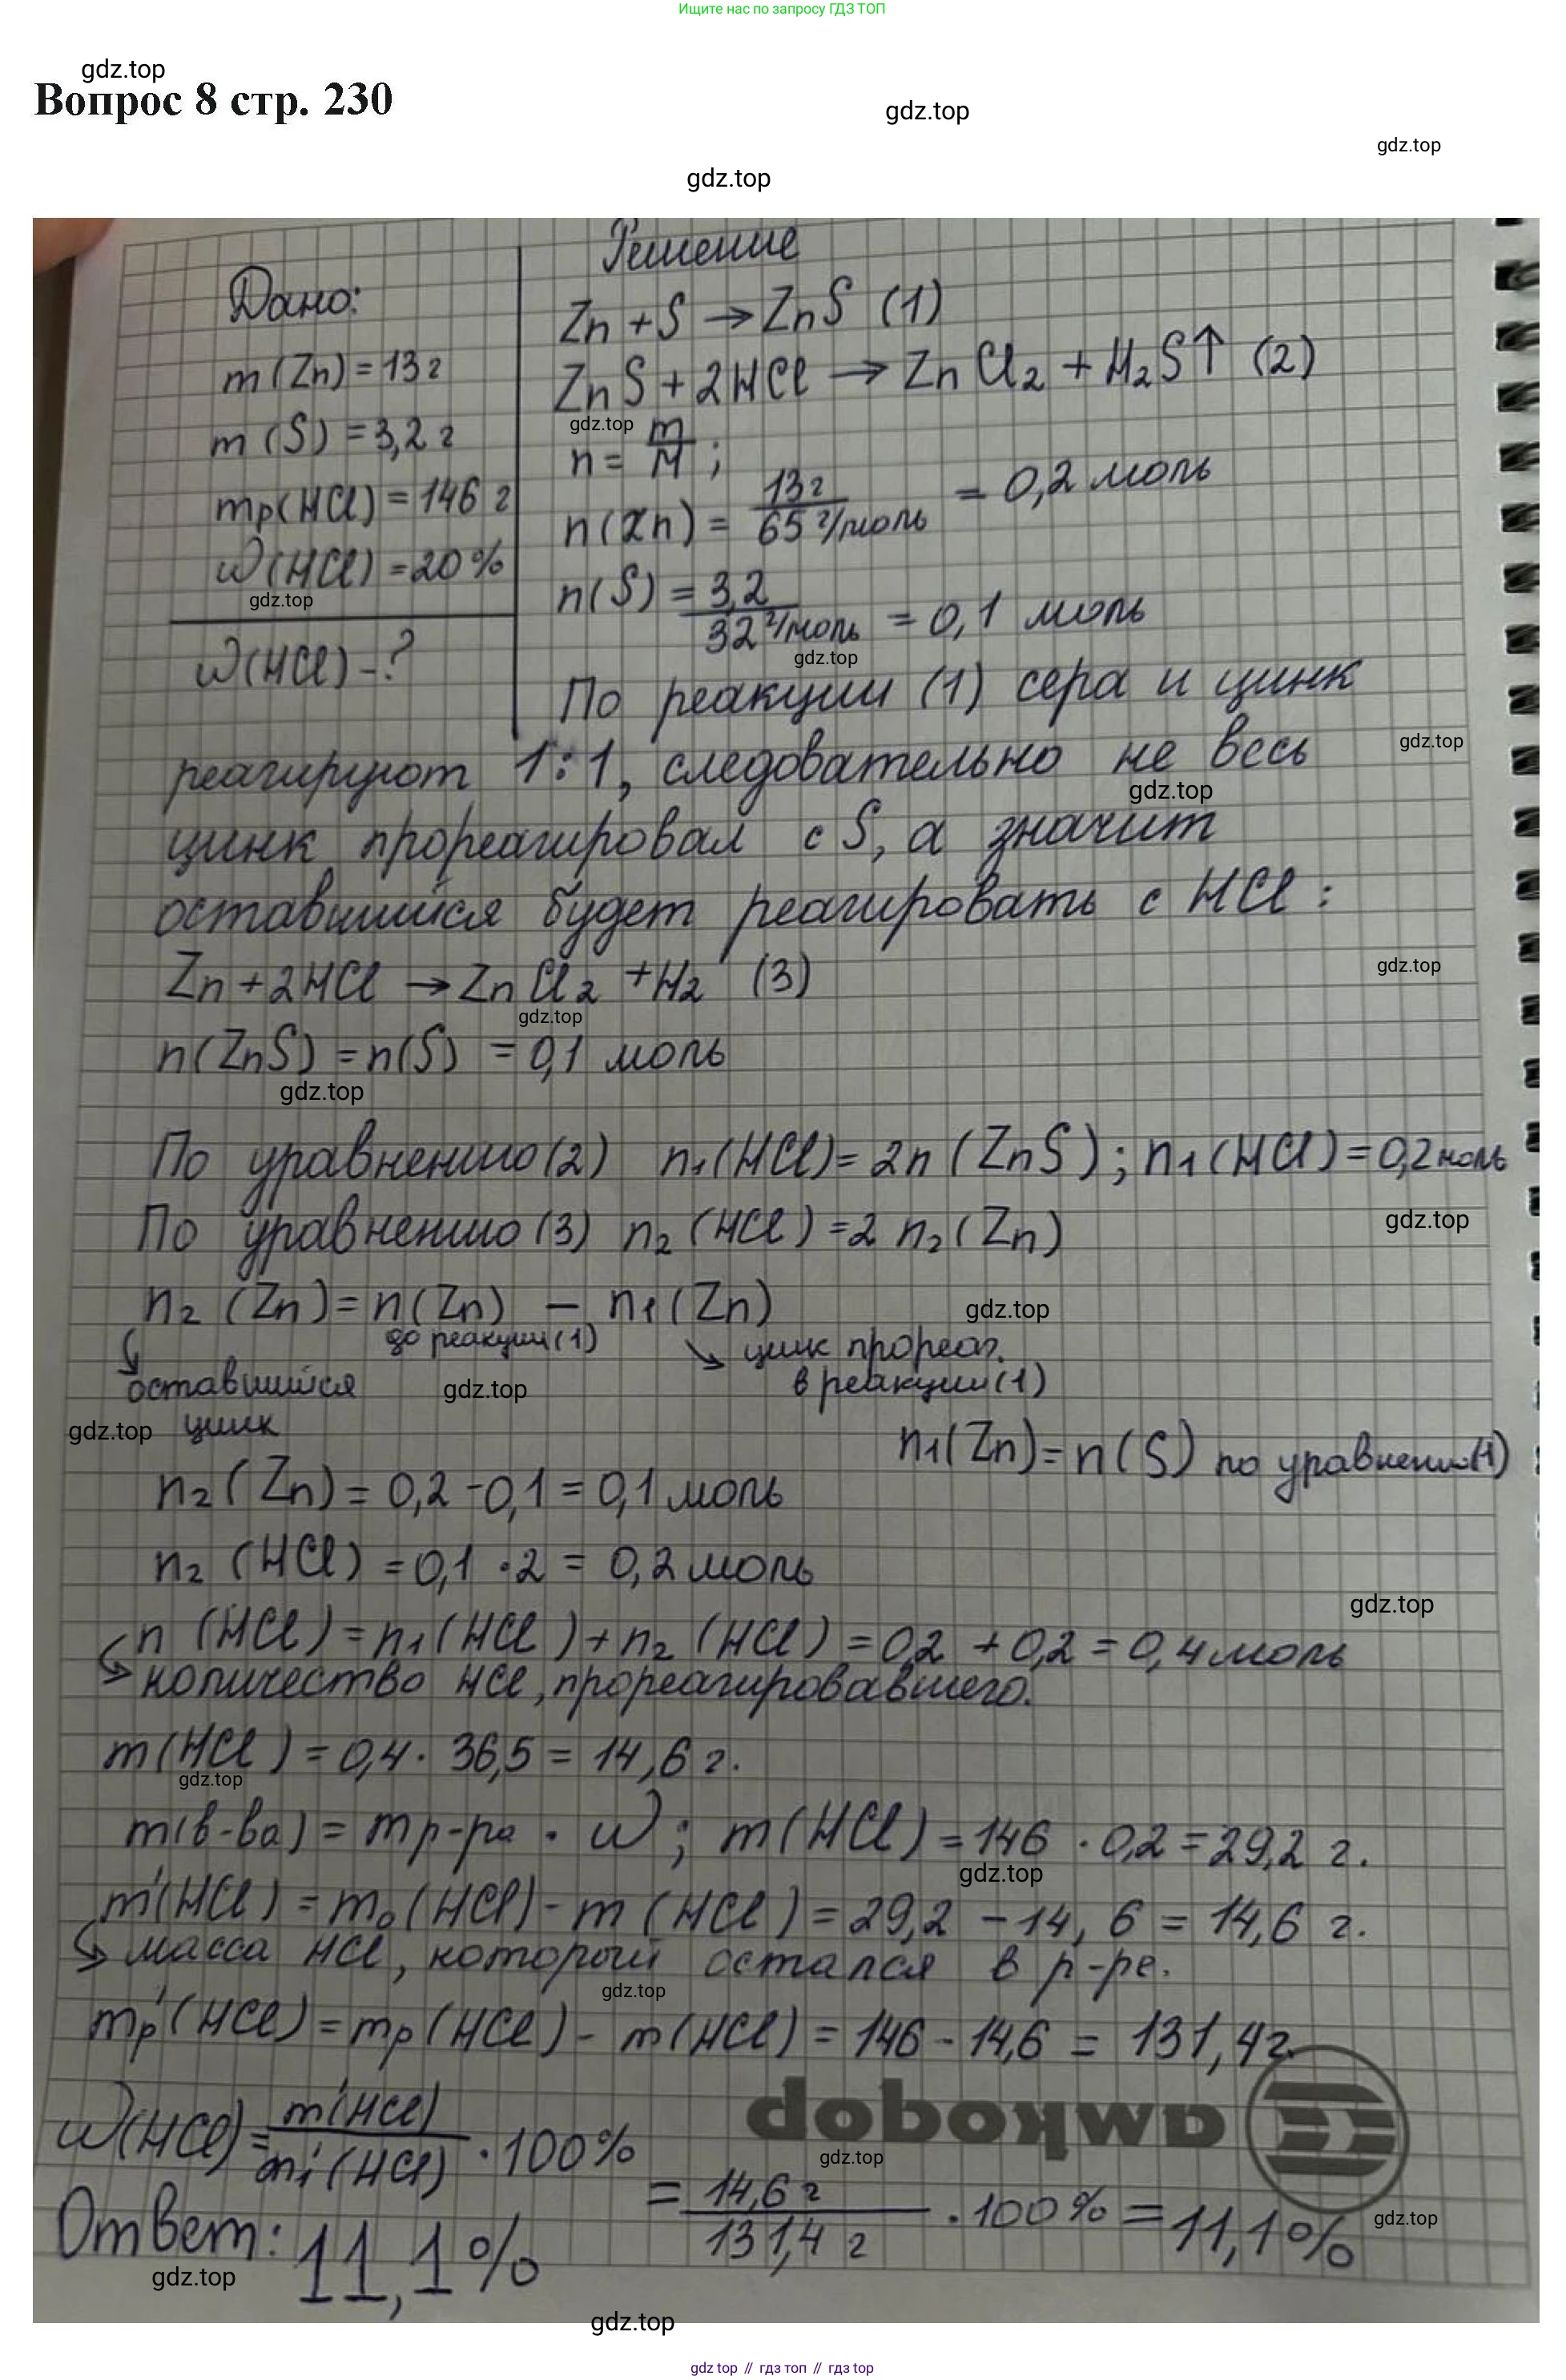 Ищите нас по запросу ГДЗ ТОП
gdz.top
Вопрос 8 стр. 230
gdz.top
gdz.top
gdz.top
Решение
Дано:
Zn + S → ZnS (1)
m (Zn) = 13 г
ZnS + 2HCl → ZnCl₂ + H₂S↑ (2)
gdz.top
m (S) = 3,2 г
n = m/M ;
mр(HCl) = 146 г
n(Zn) = 13г / 65 г/моль = 0,2 моль
ω(HCl) = 20%
gdz.top
n(S) = 3,2 / 32 г/моль = 0,1 моль
gdz.top
ω(HCl) - ?
По реакции (1) сера и цинк
gdz.top
реагируют 1:1, следовательно не весь
gdz.top
цинк прореагировал с S, а значит
оставшийся будет реагировать с HCl :
gdz.top
Zn + 2HCl → ZnCl₂ + H₂ (3)
gdz.top
n(ZnS) = n(S) = 0,1 моль
gdz.top
По уравнению (2) n₁(HCl) = 2n (ZnS) ; n₁(HCl) = 0,2 моль
gdz.top
По уравнению (3) n₂ (HCl) = 2 n₂ (Zn)
n₂ (Zn) = n(Zn) - n₁ (Zn)
gdz.top
до реакции (1)
↘ цинк прореаг.
в реакции (1)
оставшийся
gdz.top
цинк
gdz.top
n₁(Zn) = n(S) по уравнению (1)
n₂ (Zn) = 0,2 - 0,1 = 0,1 моль
n₂ (HCl) = 0,1 · 2 = 0,2 моль
gdz.top
n (HCl) = n₁ (HCl) + n₂ (HCl) = 0,2 + 0,2 = 0,4 моль
↪ количество HCl, прореагировавшего.
m (HCl) = 0,4 · 36,5 = 14,6 г.
gdz.top
m(в-ва) = mр-ра · ω ; m (HCl) = 146 · 0,2 = 29,2 г.
gdz.top
m'(HCl) = m₀ (HCl) - m (HCl) = 29,2 - 14,6 = 14,6 г.
↪ масса HCl, который остался в р-ре.
gdz.top
mр'(HCl) = mр (HCl) - m(HCl) = 146 - 14,6 = 131,4 г.
ω(HCl) = m'(HCl) / m'₁ (HCl) · 100%
gdz.top
= 14,6 г / 131,4 г · 100% = 11,1%
gdz.top
Ответ: 11,1%
gdz.top
gdz.top
gdz top // гдз топ // гдз top